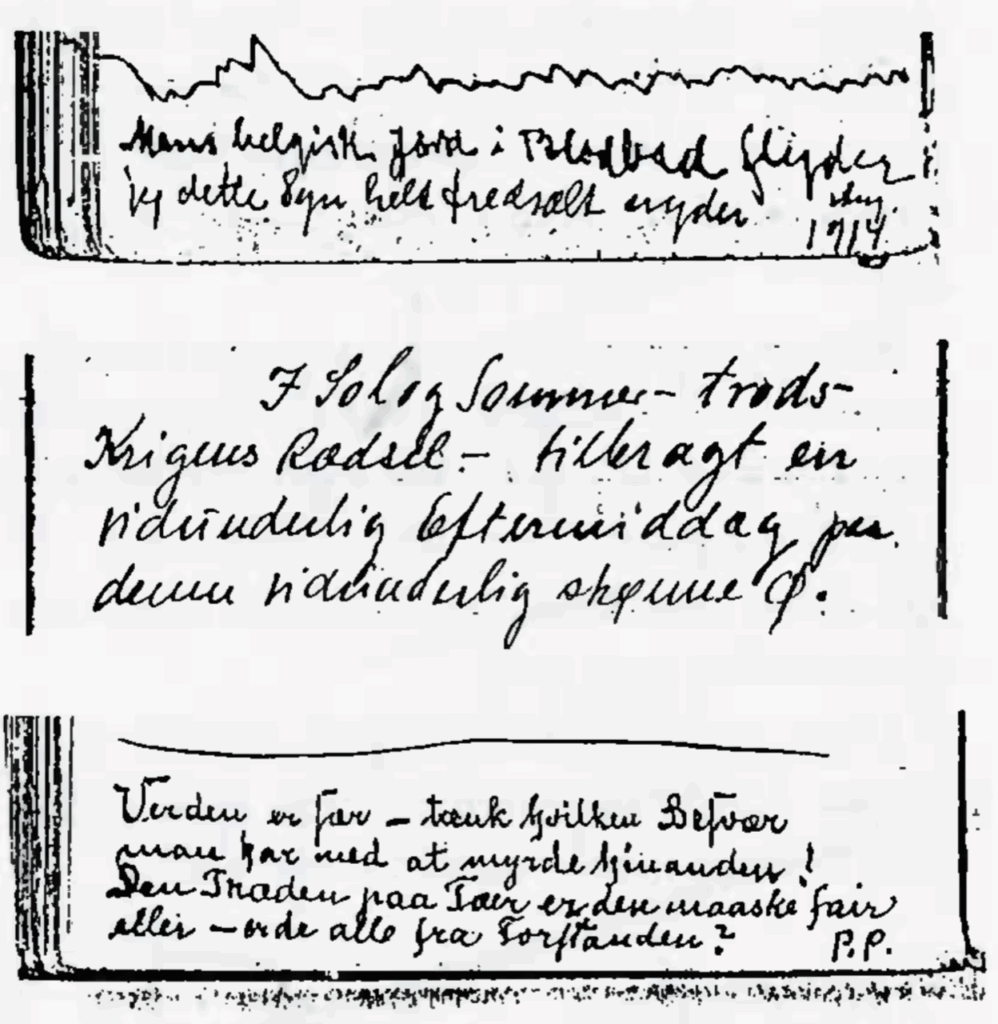 Mens belgisk Jord i Blodbad flyder
jeg dette Syn helt fredsælt nyder Aug.
1914
I Sol og Sommer - trods -
Krigens Rædsel - tilbragt en
vidunderlig Eftermiddag paa
denne vidunderlig skønne Ø.
Verden er sær - tænk hvilken Besvær
man har med at myrde hinanden!
Den Træden paa Tæer er den maaske fair
eller - er de alle fra Forstanden?
P.P.